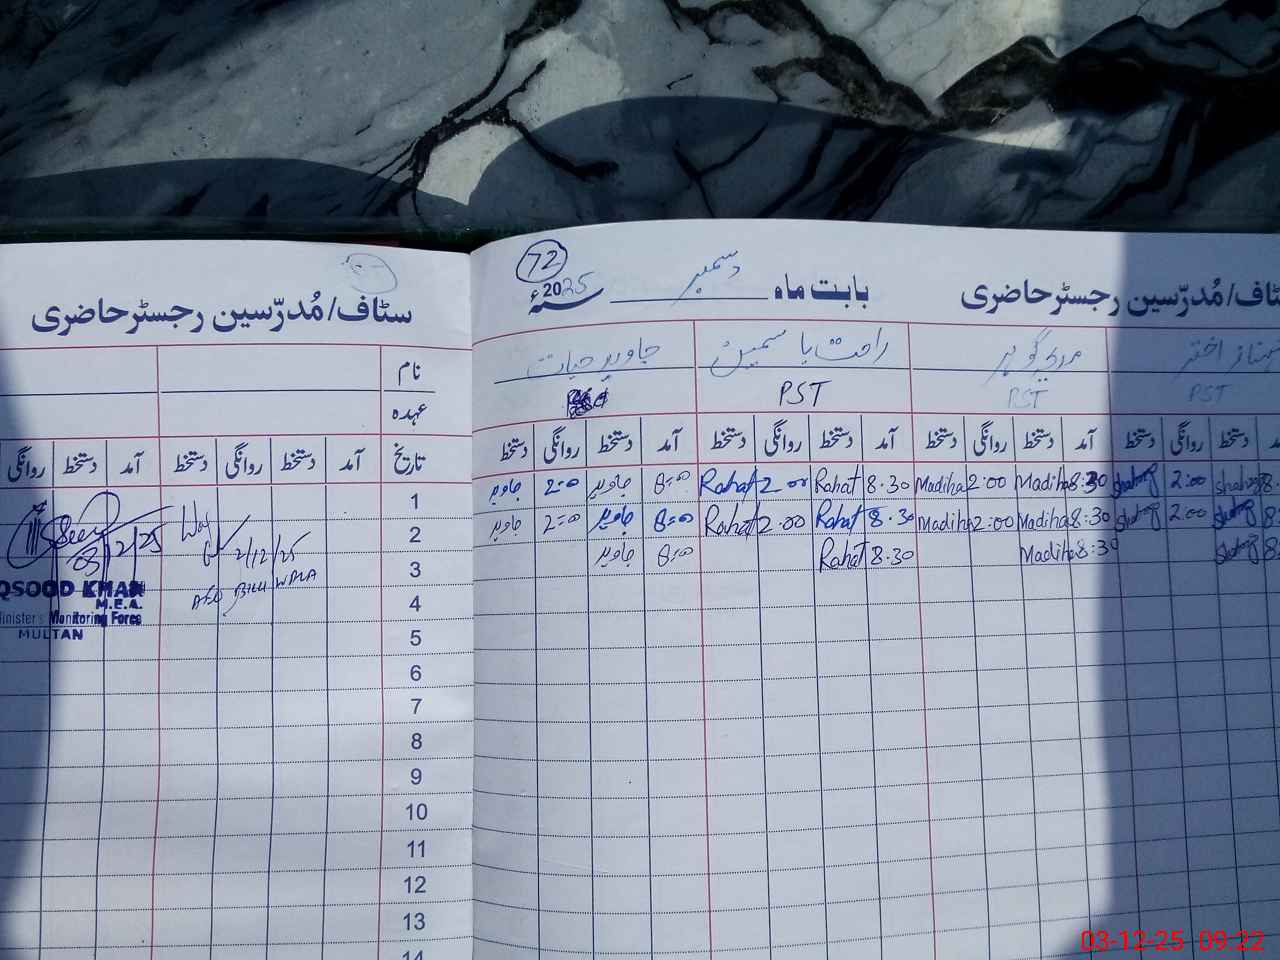 سٹاف/مُدرّسین رجسٹر حاضری
نام
عہدہ
تاریخ آمد دستخط روانگی دستخط آمد دستخط روانگی
1
2
3
4
5
6
7
8
9
10
11
12
13
14
03/12/25
2/12/25
QSOOD KHAN
M.E.A.
inister's Monitoring Force
MULTAN
72
سٹاف/مُدرّسین رجسٹر حاضری بابت ماہ دسمبر 2025ء
اختر مدیحہ گوہر راحت یاسمین جاوید حیات
PST PST PST
آمد دستخط روانگی دستخط آمد دستخط روانگی دستخط آمد دستخط روانگی دستخط آمد دستخط روانگی دستخط
8. 2:00 8:30 Madiha 2:00 Madiha 8.30 Rahat 2.00 Rahat 8=00 جاوید 2=00 جاوید
8. 2:00 8:30 Madiha 2:00 Madiha 8.30 Rahat 2.00 Rahat 8=00 جاوید 2=00 جاوید
8. 8:30 Madiha 8.30 Rahat 8=00 جاوید
03-12-25 09:22